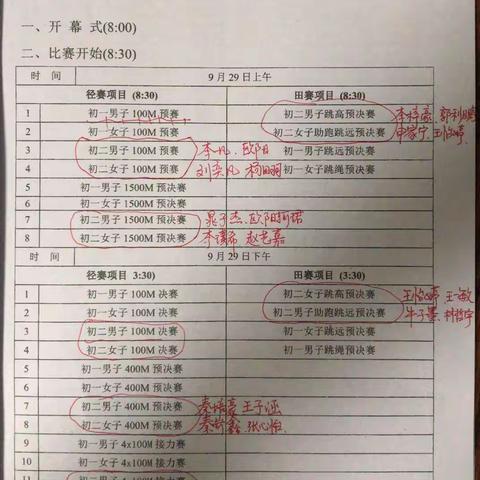 一、开 幕 式(8:00)
二、比赛开始(8:30)
时 间 9 月 29 日上午
径赛项目 (8:30) 田赛项目 (8:30)
1 初一男子 100M 预赛 初二男子跳高预决赛
2 初一女子 100M 预赛 初二女子助跑跳远预决赛
3 初二男子 100M 预赛 李凡、欧阳 初一男子跳远预决赛
4 初二女子 100M 预赛 刘奕凡 初一女子跳绳预决赛
5 初一男子 1500M 预决赛
6 初一女子 1500M 预决赛
7 初二男子 1500M 预决赛 晁子杰、欧阳
8 初二女子 1500M 预决赛 赵艺嘉
时 间 9 月 29 日下午
径赛项目 3:30) 田赛项目 (3:30)
1 初一男子 100M 决赛 初二女子跳高预决赛 王一敏
2 初一女子 100M 决赛 初二男子助跑跳远预决赛
3 初二男子 100M 决赛 初一女子跳远预决赛
4 初二女子 100M 决赛 初一男子跳绳预决赛
5 初一男子 400M 预决赛
6 初一女子 400M 预决赛
7 初二男子 400M 预决赛 秦培豪 王子涵
8 初二女子 400M 预决赛 张心怡
9 初一男子 4x100M 接力赛
10 初一女子 4x100M 接力赛
11